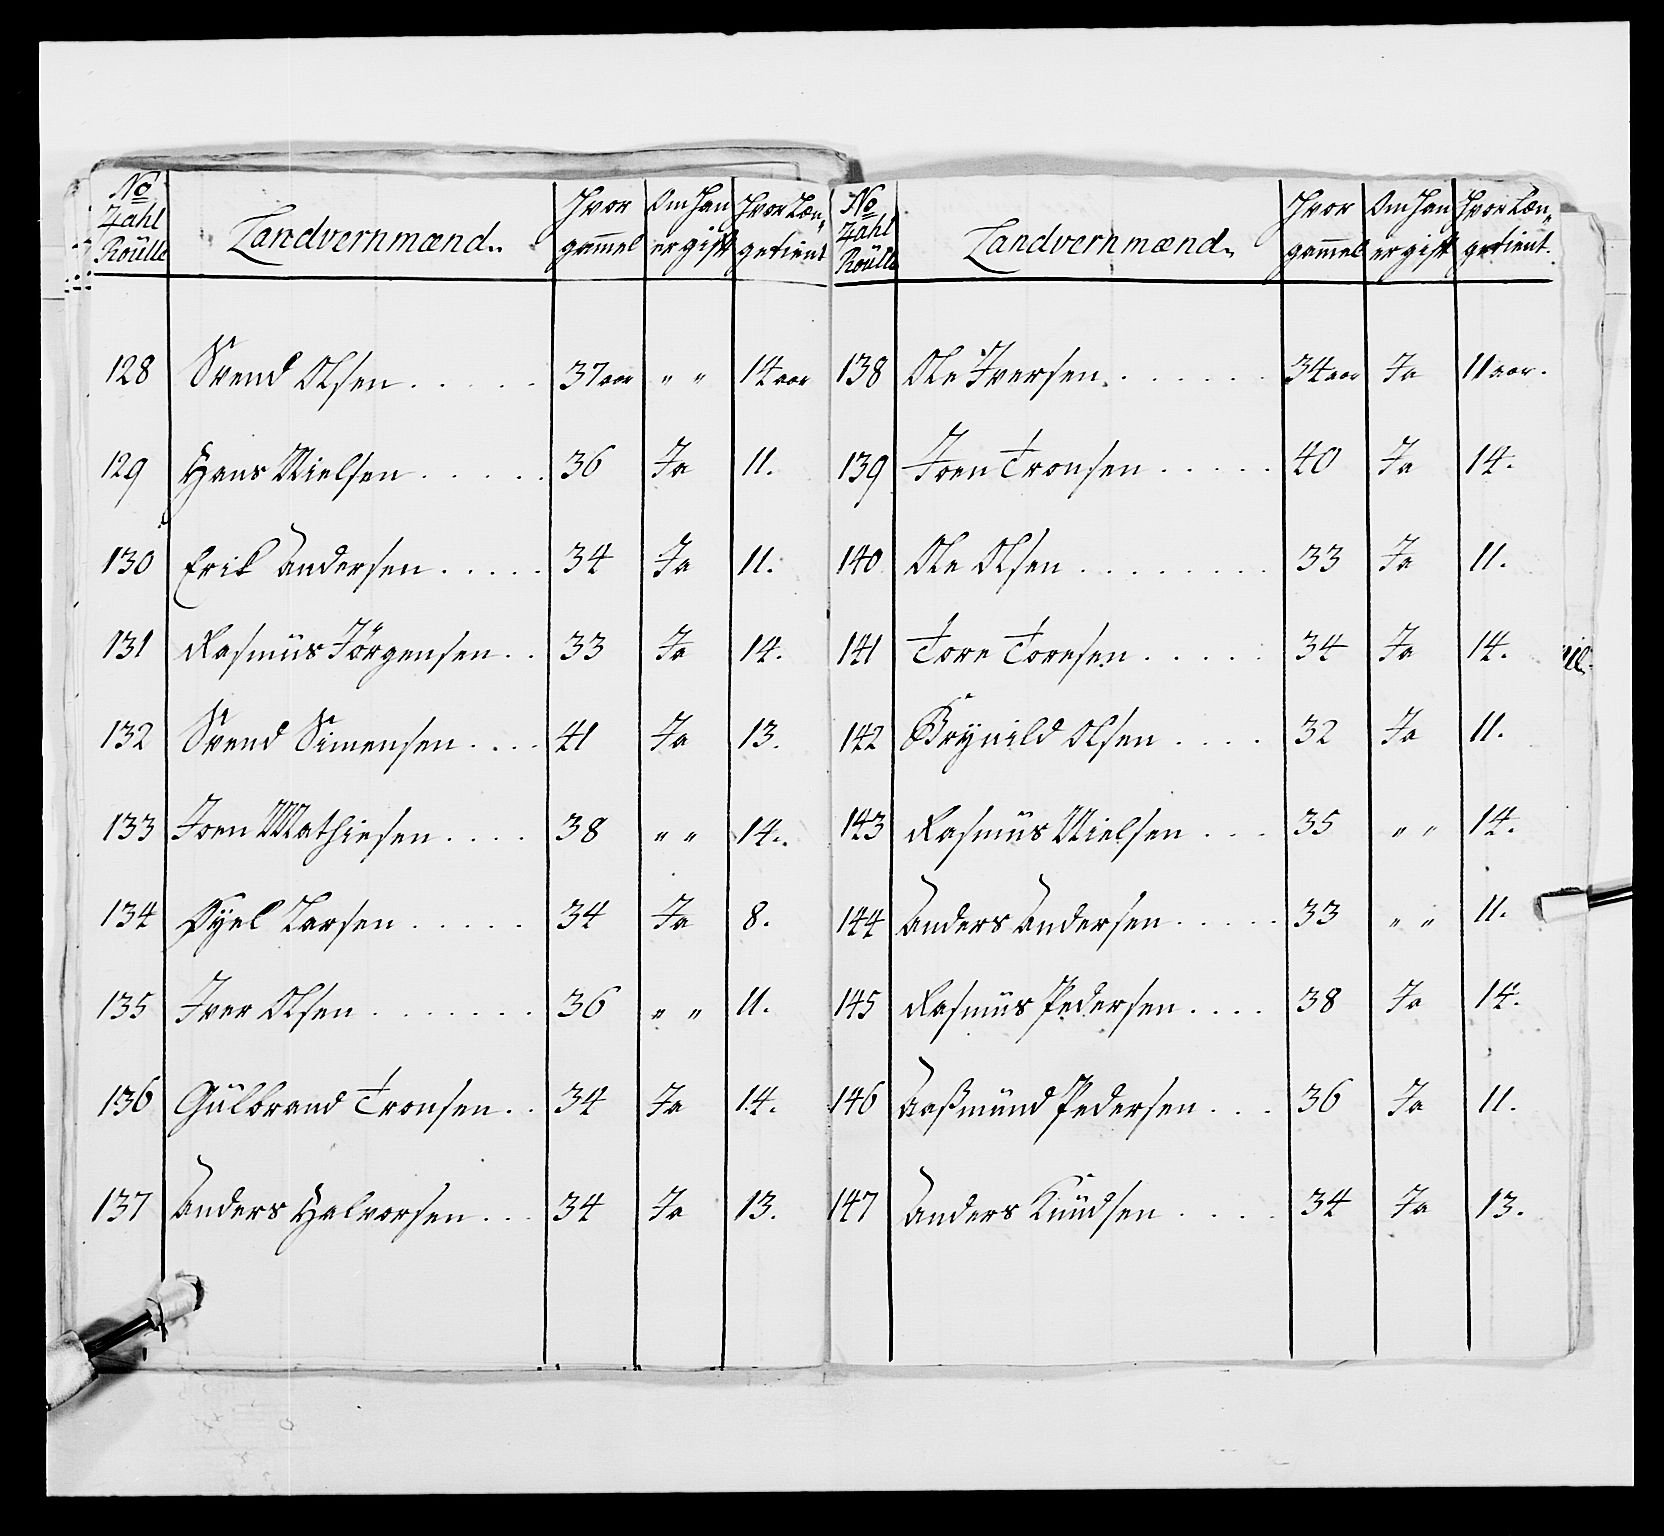 No Zahl Roülle Landvernmænd. Hvor gammel Om han er gift Hvor Læn„ getient
128 Svend Olsen . . . . . 37 aar „ „ 14 aar
129 Hans Nielsen . . . . . 36 Ja 11.
130 Erik Andersen . . . . . 34 Ja 11.
131 Rasmüs Jörgensen . . 33 Ja 14.
132 Svend Simensen . . . . 41 Ja 13.
133 Joen Mathiesen . . . . 38 „ „ 14.
134 Syel Larsen . . . . . 34 Ja 8.
135 Iver Olsen . . . . . . . 36 „ „ 11.
136 Gülbrand Tronsen . . 34 Ja 14.
137 Anders Halvorsen . . . 34 Ja 13.
No Zahl Roülle Landvernmænd. Hvor gammel Om han er gift Hvor Læn„ getient.
138 Ole Iversen . . . . . . 34 aar Ja 11 aar.
139 Joen Tronsen . . . . . 40 Ja 14.
140 Ole Olsen . . . . . . . . 33 Ja 11.
141 Tore Toresen . . . . . 34 Ja 14.
142 Brynild Olsen . . . . 32 Ja 11.
143 Rasmüs Nielsen . . . 35 „ „ 14.
144 Anders Andersen . . . . . 33 „ „ 11.
145 Rasmüs Pedersen . . . . 38 Ja 14.
146 Aaßmünd Pedersen . . . 36 Ja 11.
147 Anders Knüdsen . . . . 34 Ja 13.